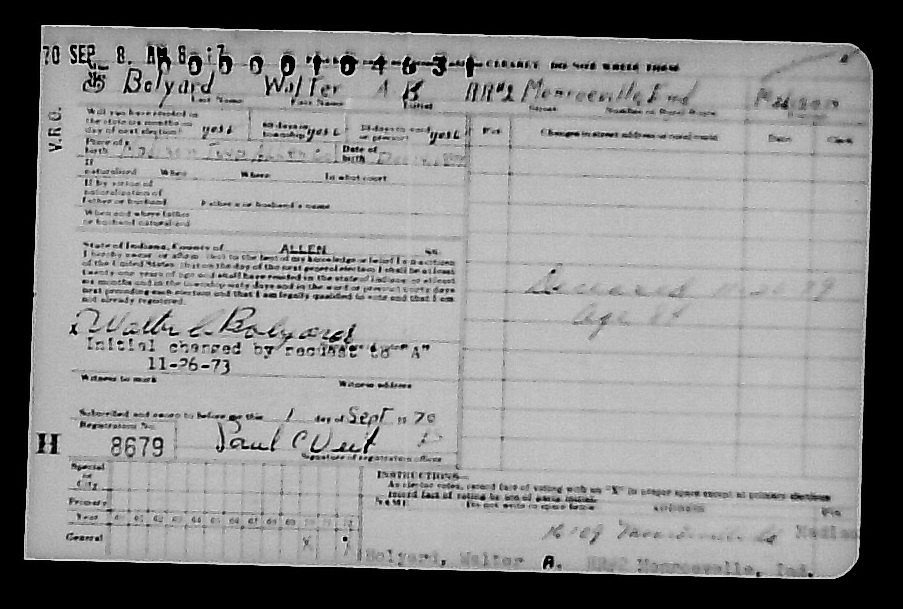 70 SEP 8. AM 8
00010463 CLEARLY DO NOT WRITE
Bolyard Walter A RR#2 Monroeville Ind
Last Name First Name Initial Street Number or Rural Route
Will you have resided in
the state six months on
day of next election? yes 60 days in township yes 30 days in ward or precinct yes
V.R.G.
Pre. Change in street address or rural route Date Clerk
Place of birth Madison Twp Allen Co Date of birth
If
naturalized When Where In what court
If by virtue of
naturalization of
father or husband Father's or husband's name
When and where father
or husband naturalized
State of Indiana, County of ALLEN ss.
I hereby swear or affirm that to the best of my knowledge or belief I am a citizen
of the United States; that on the day of the next general election I shall be at least
twenty one years of age and shall have resided in the state of Indiana or at least
six months and in the township sixty days and in the ward or precinct thirty days
next preceding such election and that I am legally qualified to vote and that I am
not already registered.
Deceased 89
age 84
Walter Bolyard
Initial changed by request to "A"
11-26-73
Witness to mark Witness address
Subscribed and sworn to before me this 1 day of Sept 19 70
Registration No.
H 8679 Paul C
Signature of registration officer
Special
or
City
Primary
Year 60 61 62 63 64 65 66 67 68 69 70 71 72
General X
INSTRUCTIONS—
As elector votes, record fact of voting with an "X" in proper space except at primary elections
record fact of voting by use of party initial.
NAME Do not write in space below ADDRESS Pre.
Bolyard, Walter A. RR#2 Monroeville, Ind.